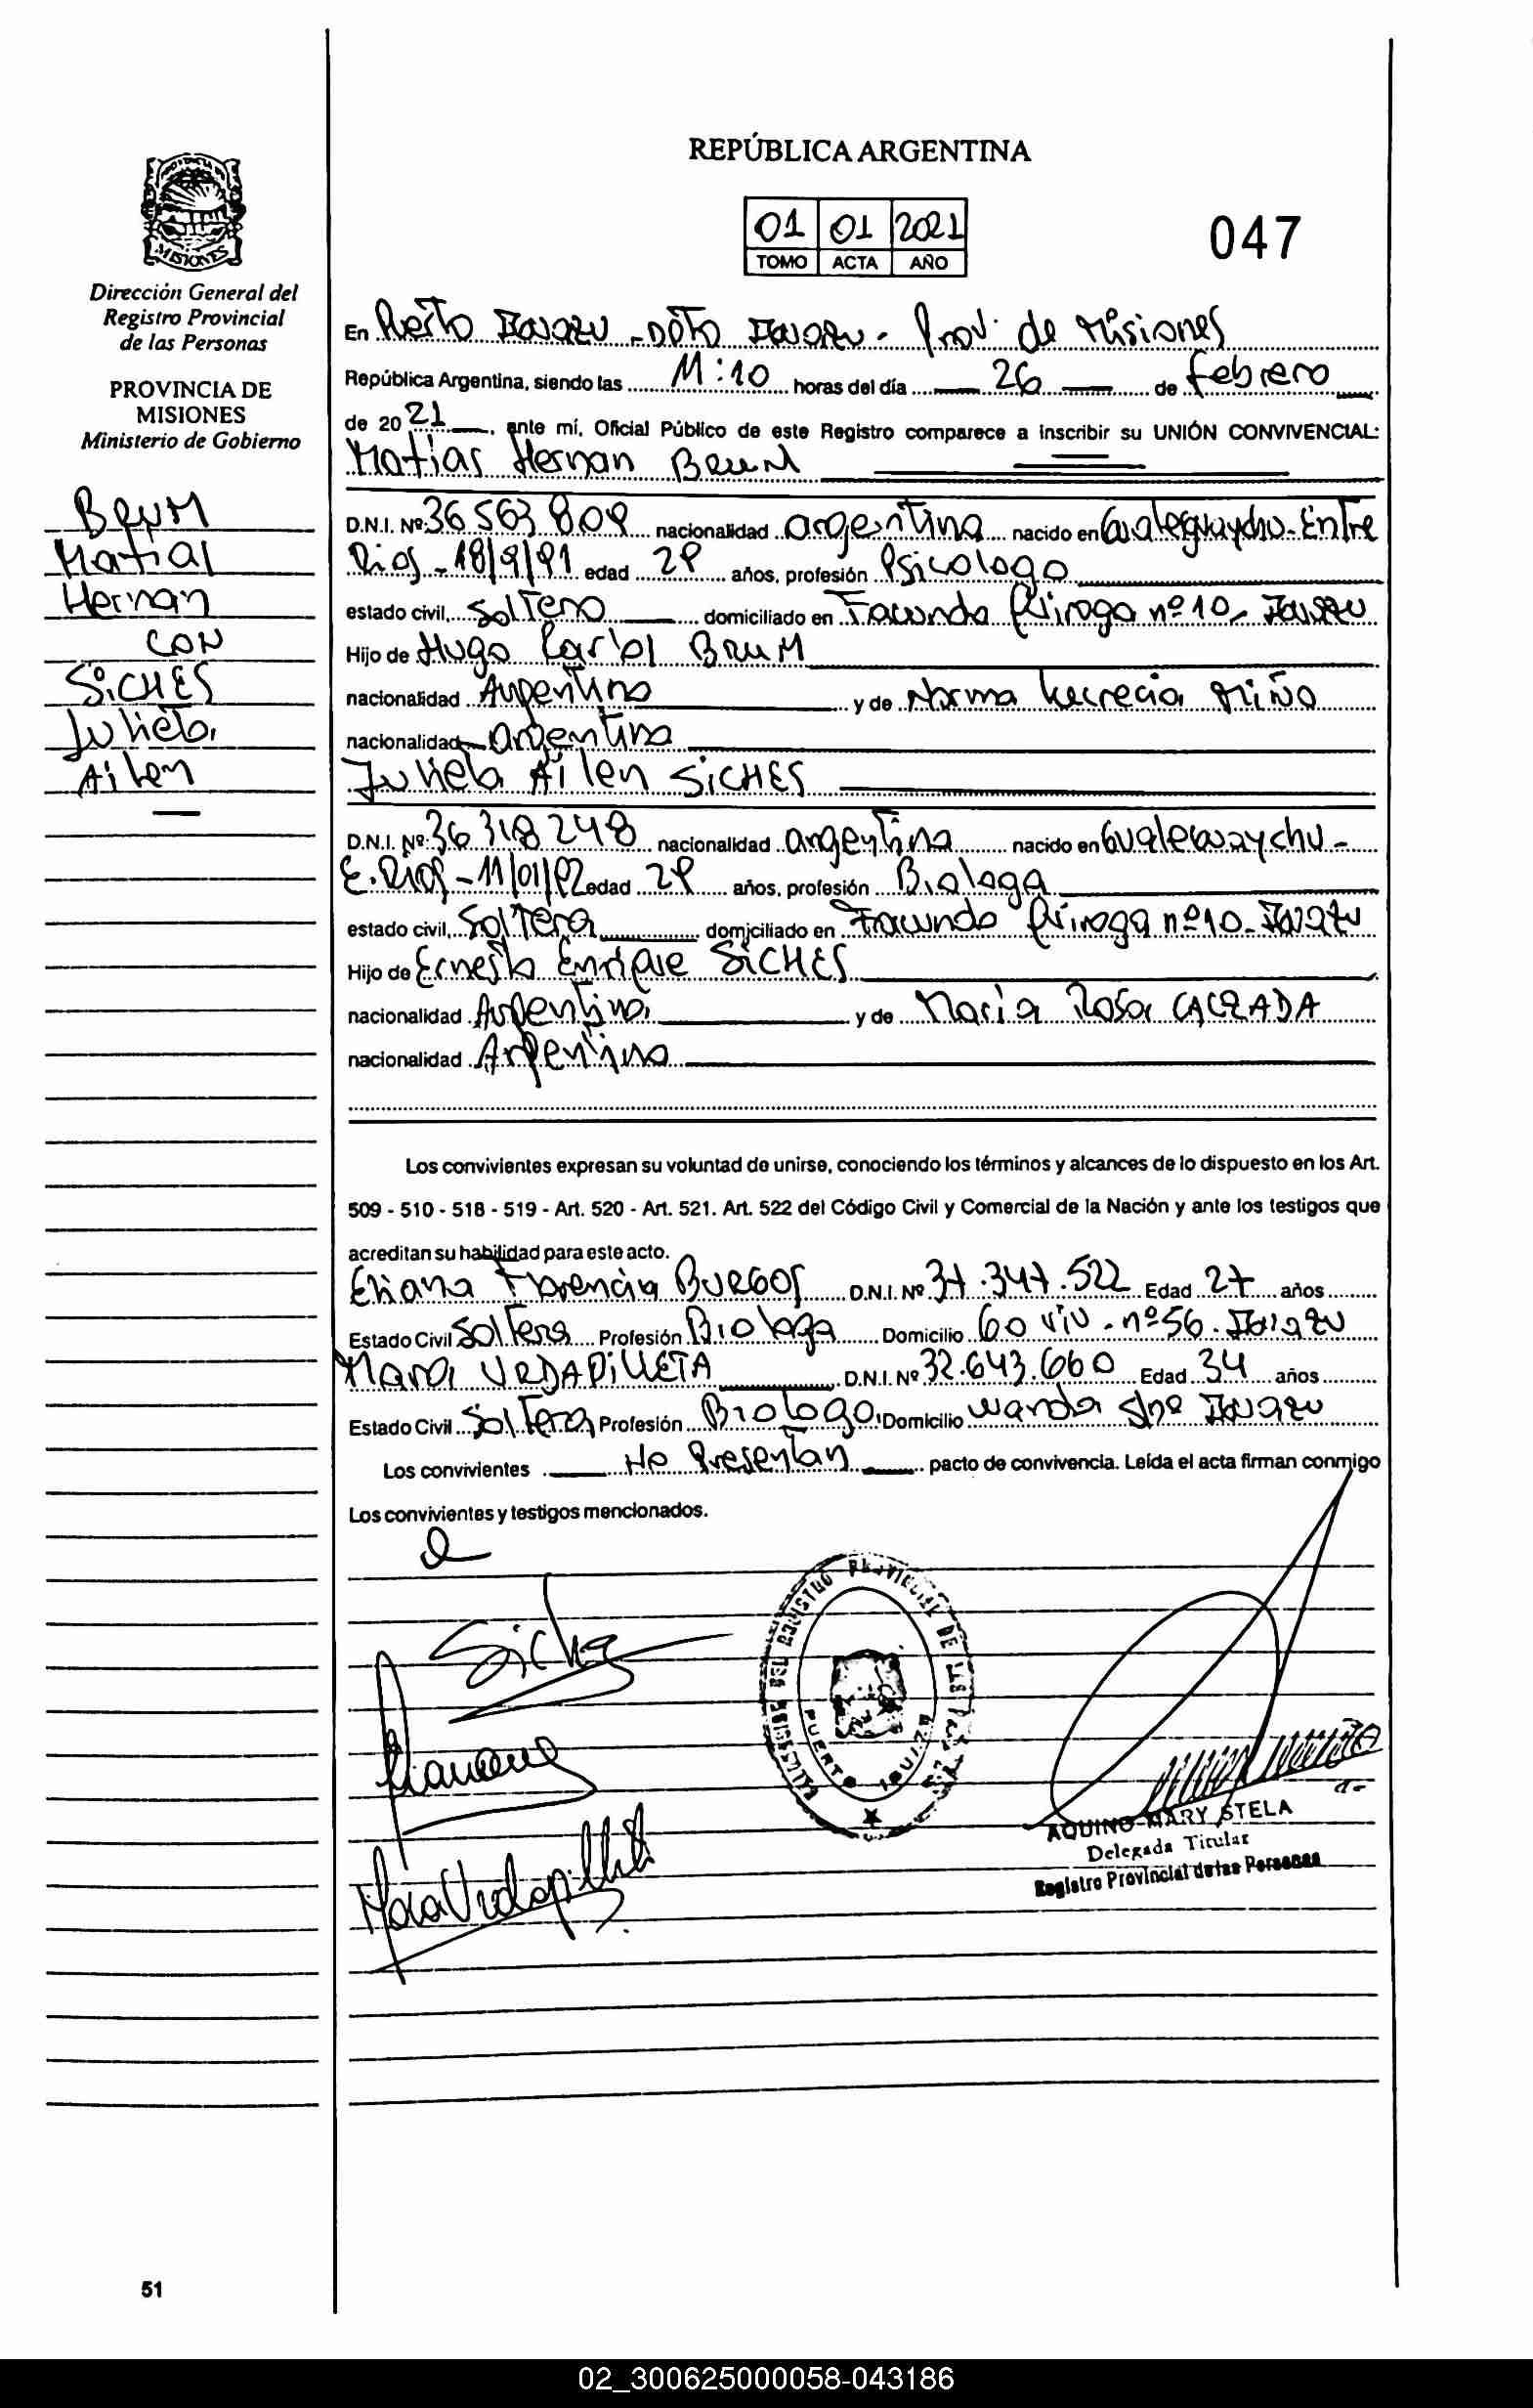 REPÚBLICA ARGENTINA
01 01 2021
TOMO ACTA AÑO
047
MISIONES
Dirección General del
Registro Provincial
de las Personas
PROVINCIA DE
MISIONES
Ministerio de Gobierno
BRUM
Matias
Hernan
CON
SiCHES
Julieta
Ailen
En Puerto Iguazu - Dpto Iguazu - Prov. de Misiones
República Argentina, siendo las 11:10 horas del día 26 de febrero
de 2021, ante mí, Oficial Público de este Registro comparece a inscribir su UNIÓN CONVIVENCIAL:
Matias Hernan BRUM
D.N.I. Nº: 36 563 809 nacionalidad argentina nacido en Gualeguaychu - Entre
Rios - 18/9/91 edad 29 años, profesión Psicologo
estado civil, Soltero domiciliado en Facundo Quiroga nº 10 - Iguazu
Hijo de Hugo Carlos BRUM
nacionalidad Argentina y de Norma Lucrecia Miño
nacionalidad argentina
Julieta Ailen SiCHES
D.N.I. Nº: 36 318 248 nacionalidad argentina nacido en Gualeguaychu -
E. Rios - 11/01/92 edad 29 años, profesión Biologa
estado civil, Soltera domiciliado en Facundo Quiroga nº 10 - Iguazu
Hijo de Ernesto Enrique SiCHES
nacionalidad Argentina y de Maria Rosa
nacionalidad Argentina
Los convivientes expresan su voluntad de unirse, conociendo los términos y alcances de lo dispuesto en los Art.
509 - 510 - 518 - 519 - Art. 520 - Art. 521. Art. 522 del Código Civil y Comercial de la Nación y ante los testigos que
acreditan su habilidad para este acto.
Eliana Florencia BURGOS D.N.I. Nº 37.347.522 Edad 27 años
Estado Civil Soltera Profesión Biologa Domicilio 60 viv. nº 56. Iguazu
Mara URDAPiLLETA D.N.I. Nº 32.643.660 Edad 34 años
Estado Civil Soltera Profesión Biologo Domicilio Wanda Iguazu
Los convivientes No Presentan pacto de convivencia. Leída el acta firman conmigo
Los convivientes y testigos mencionados.
Siches
Mara Urdapilleta
DEL REGISTRO PROVINCIAL DE LAS
PUERTO IGUAZU
AQUINO MARY STELA
Delegada Titular
Registro Provincial de las Personas
51
02_300625000058-043186